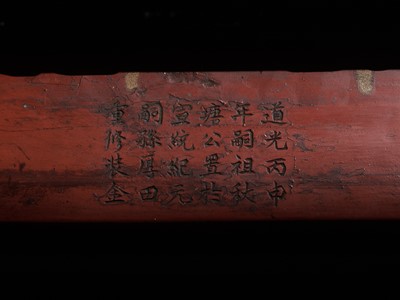 道光丙申
年嗣祖秋
塘公置於
宣統紀元
嗣孫厚田
重修裝金